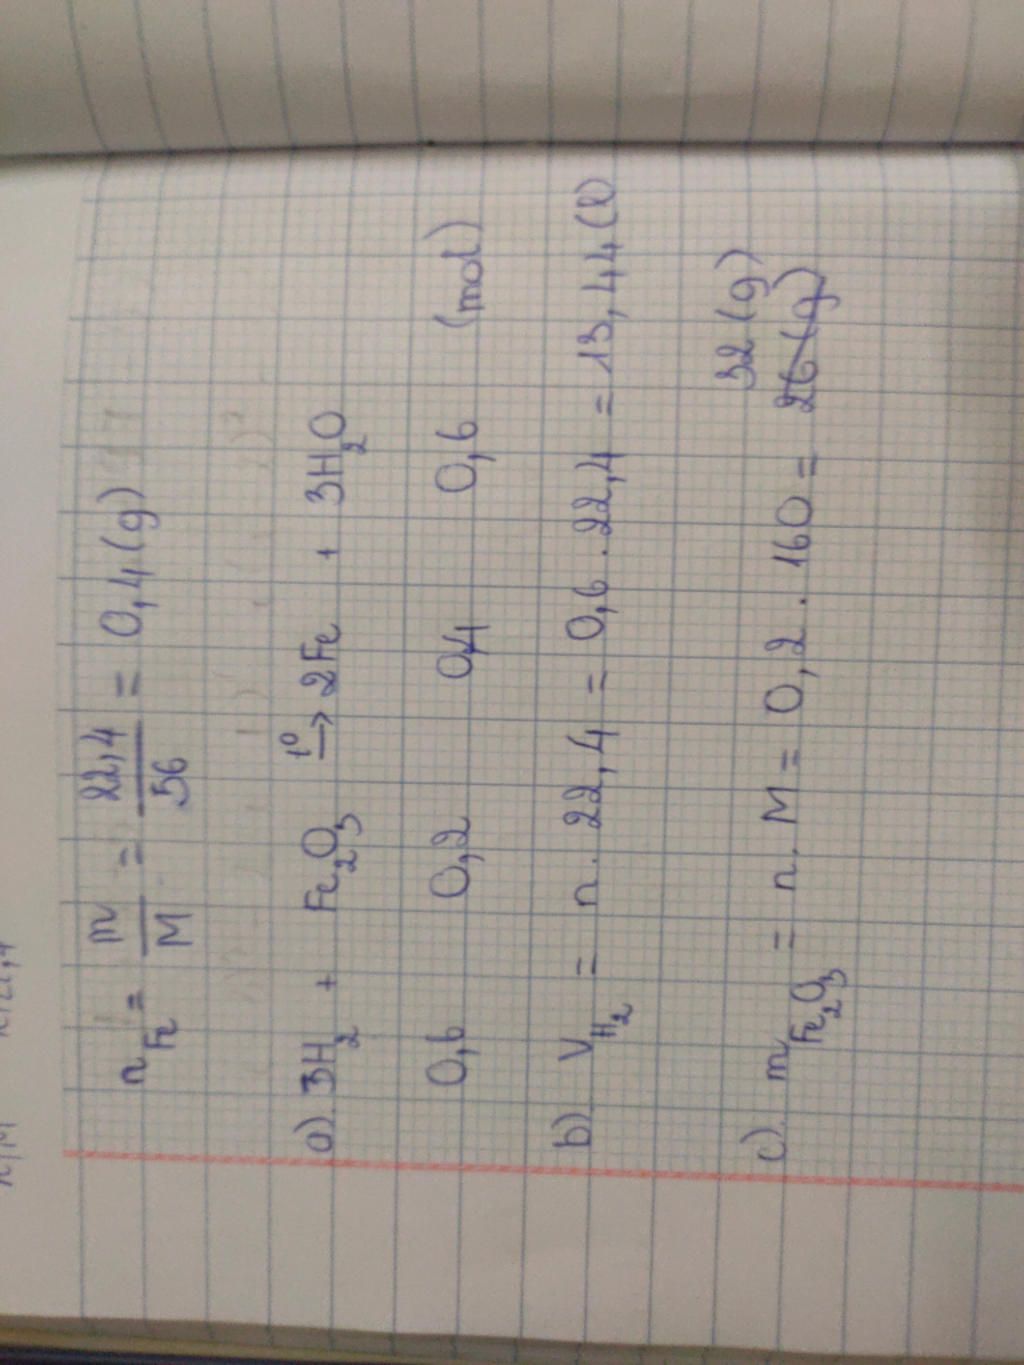 n_Fe = m/M = 22,4/56 = 0,4 (g)
a) 3H₂ + Fe₂O₃ →(t°) 2Fe + 3H₂O
0,6 0,2 0,4 0,6 (mol)
b) V_H₂ = n . 22,4 = 0,6 . 22,4 = 13,44 (l)
32 (g)
c) m_Fe₂O₃ = n . M = 0,2 . 160 = 26 (g)